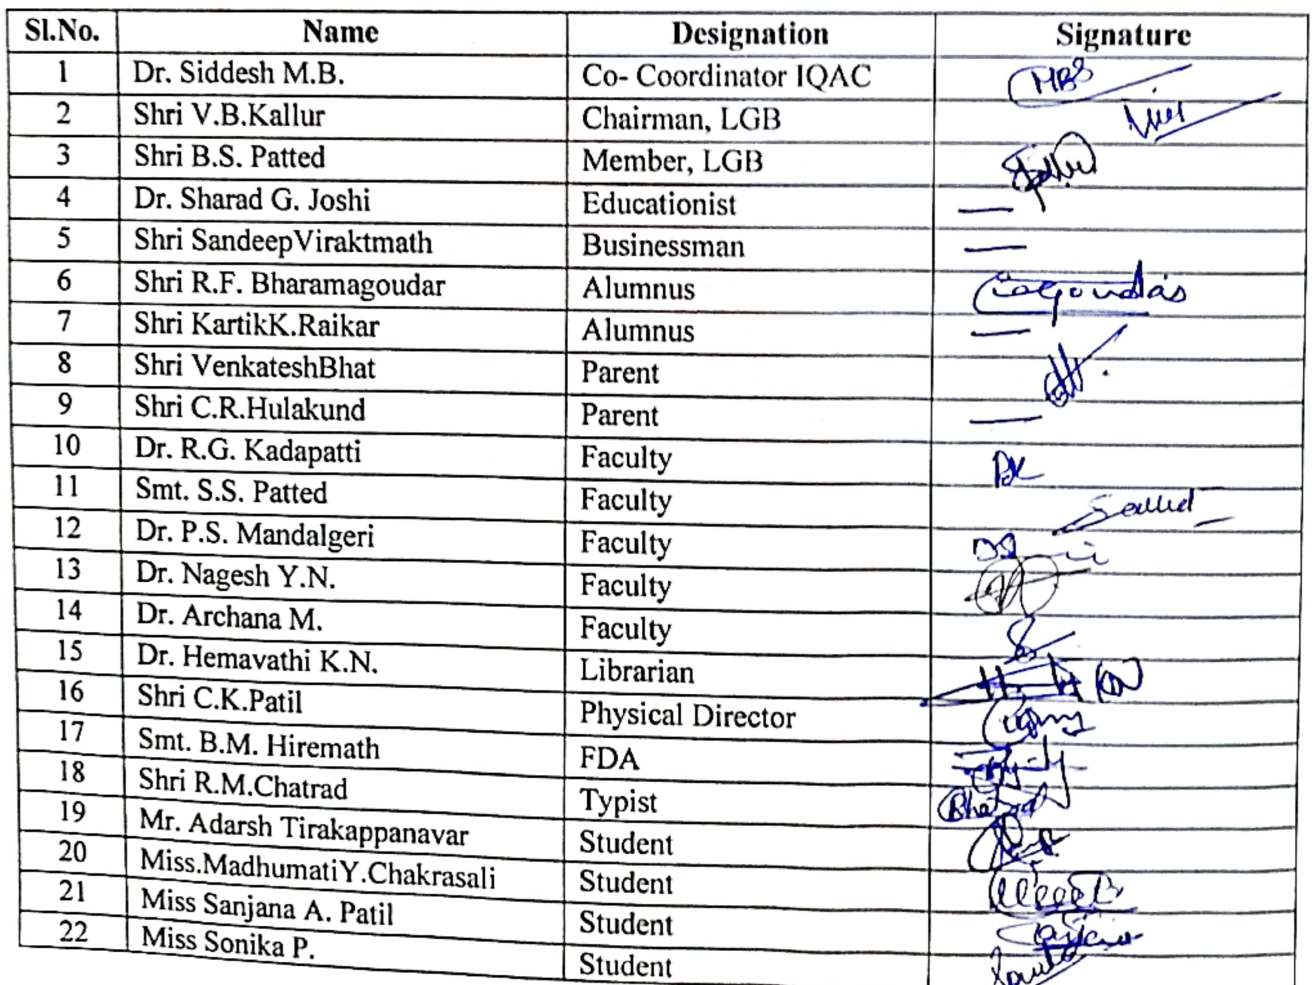 Sl.No. Name Designation Signature
1 Dr. Siddesh M.B. Co- Coordinator IQAC MBS
2 Shri V.B.Kallur Chairman, LGB
3 Shri B.S. Patted Member, LGB
4 Dr. Sharad G. Joshi Educationist —
5 Shri SandeepViraktmath Businessman —
6 Shri R.F. Bharamagoudar Alumnus
7 Shri KartikK.Raikar Alumnus —
8 Shri VenkateshBhat Parent
9 Shri C.R.Hulakund Parent —
10 Dr. R.G. Kadapatti Faculty
11 Smt. S.S. Patted Faculty
12 Dr. P.S. Mandalgeri Faculty
13 Dr. Nagesh Y.N. Faculty
14 Dr. Archana M. Faculty
15 Dr. Hemavathi K.N. Librarian
16 Shri C.K.Patil Physical Director
17 Smt. B.M. Hiremath FDA
18 Shri R.M.Chatrad Typist
19 Mr. Adarsh Tirakappanavar Student
20 Miss.MadhumatiY.Chakrasali Student
21 Miss Sanjana A. Patil Student
22 Miss Sonika P. Student